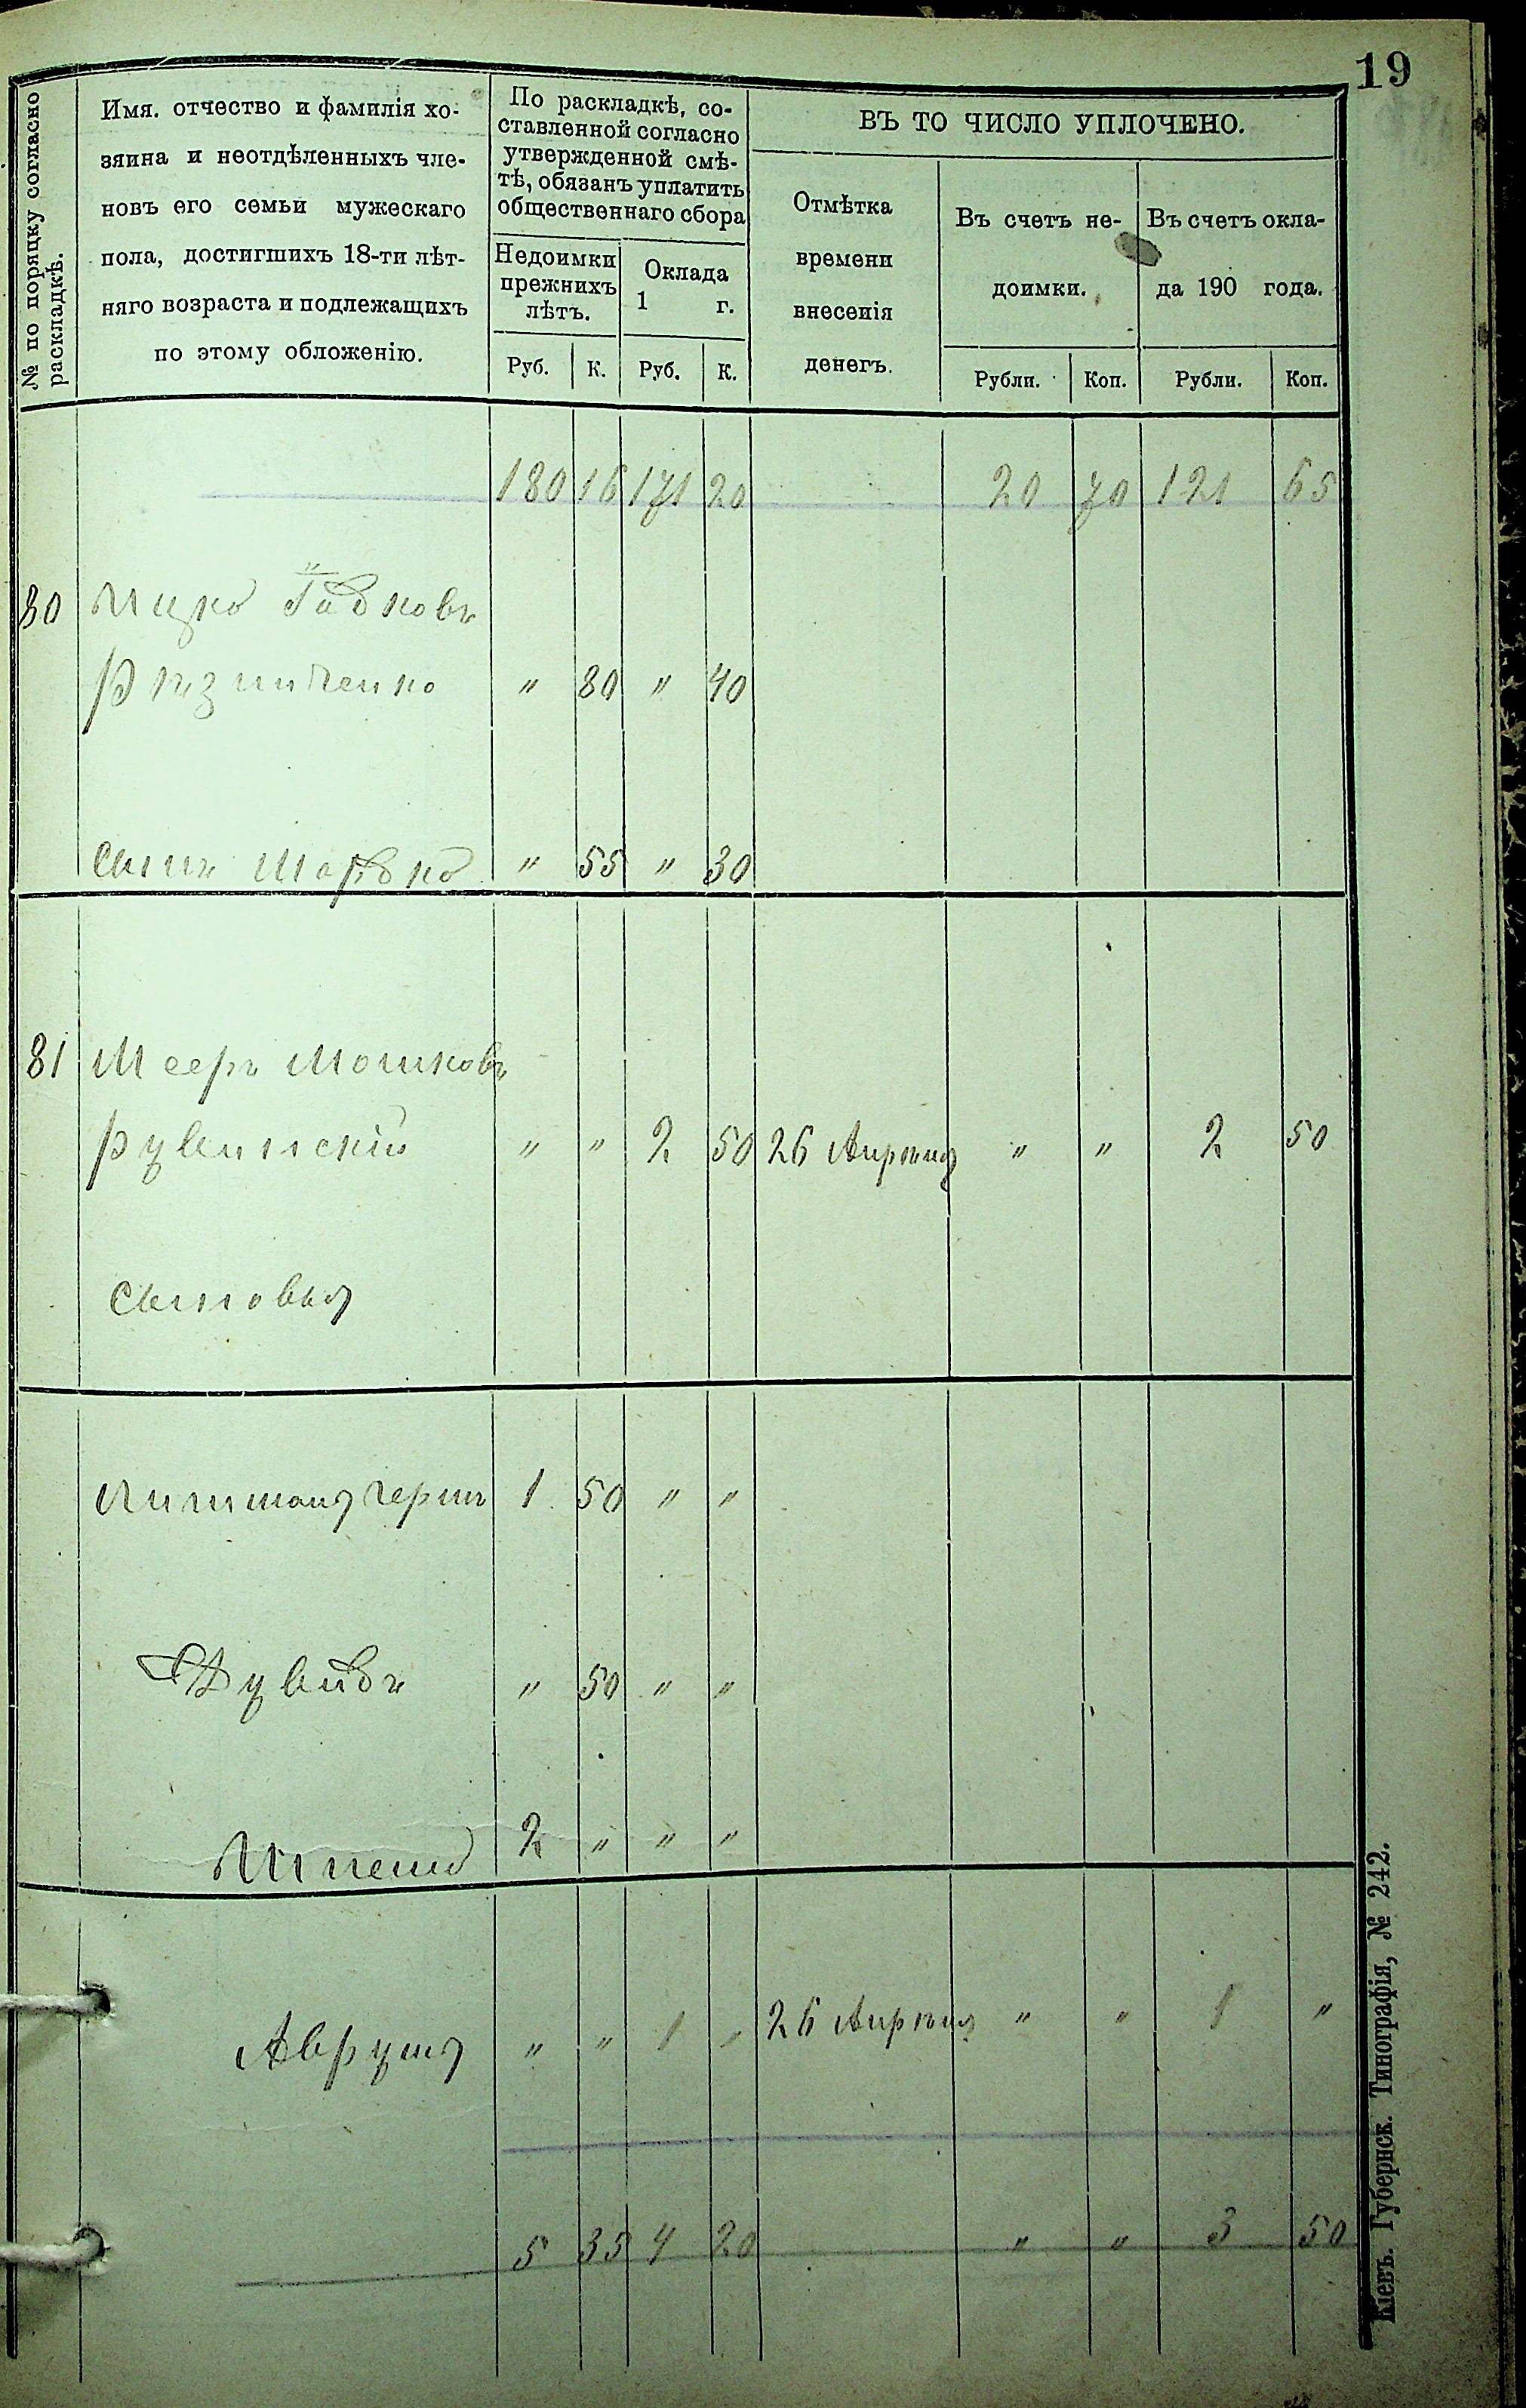 19
№ по поряцку согласно
раскладкѣ.
Имя. отчество и фамилія хо-
зяина и неотдѣленныхъ чле-
новъ его семьи мужескаго
пола, достигшихъ 18-ти лѣт-
няго возраста и подлежащихъ
по этому обложенію.
По раскладкѣ, со-
ставленной согласно
утвержденной смѣ-
тѣ, обязанъ уплатить
общественнаго сбора
Недоимки
прежнихъ
лѣтъ.
Оклада
1 г.
Руб. К. Руб. К.
ВЪ ТО ЧИСЛО УПЛОЧЕНО.
Отмѣтка
времени
внесенія
денегъ.
Въ счетъ не-
доимки.
Въ счетъ окла-
да 190 года.
Рубли. Коп. Рубли. Коп.
180 16 171 20 20 70 121 65
80 Ицко
" 80 " 40
Сынъ " 55 " 30
81 Мееръ Мошковъ
Рувинскій " " 2 50 26 Апрѣля " " 2 50
Сыновья
1 50 " "
" 50 " "
2 " " "
Аврумъ " " 1 " 26 Апрѣля " " 1 "
5 35 4 20 " " 3 50
Кіевъ. Губернск. Типографія, № 242.